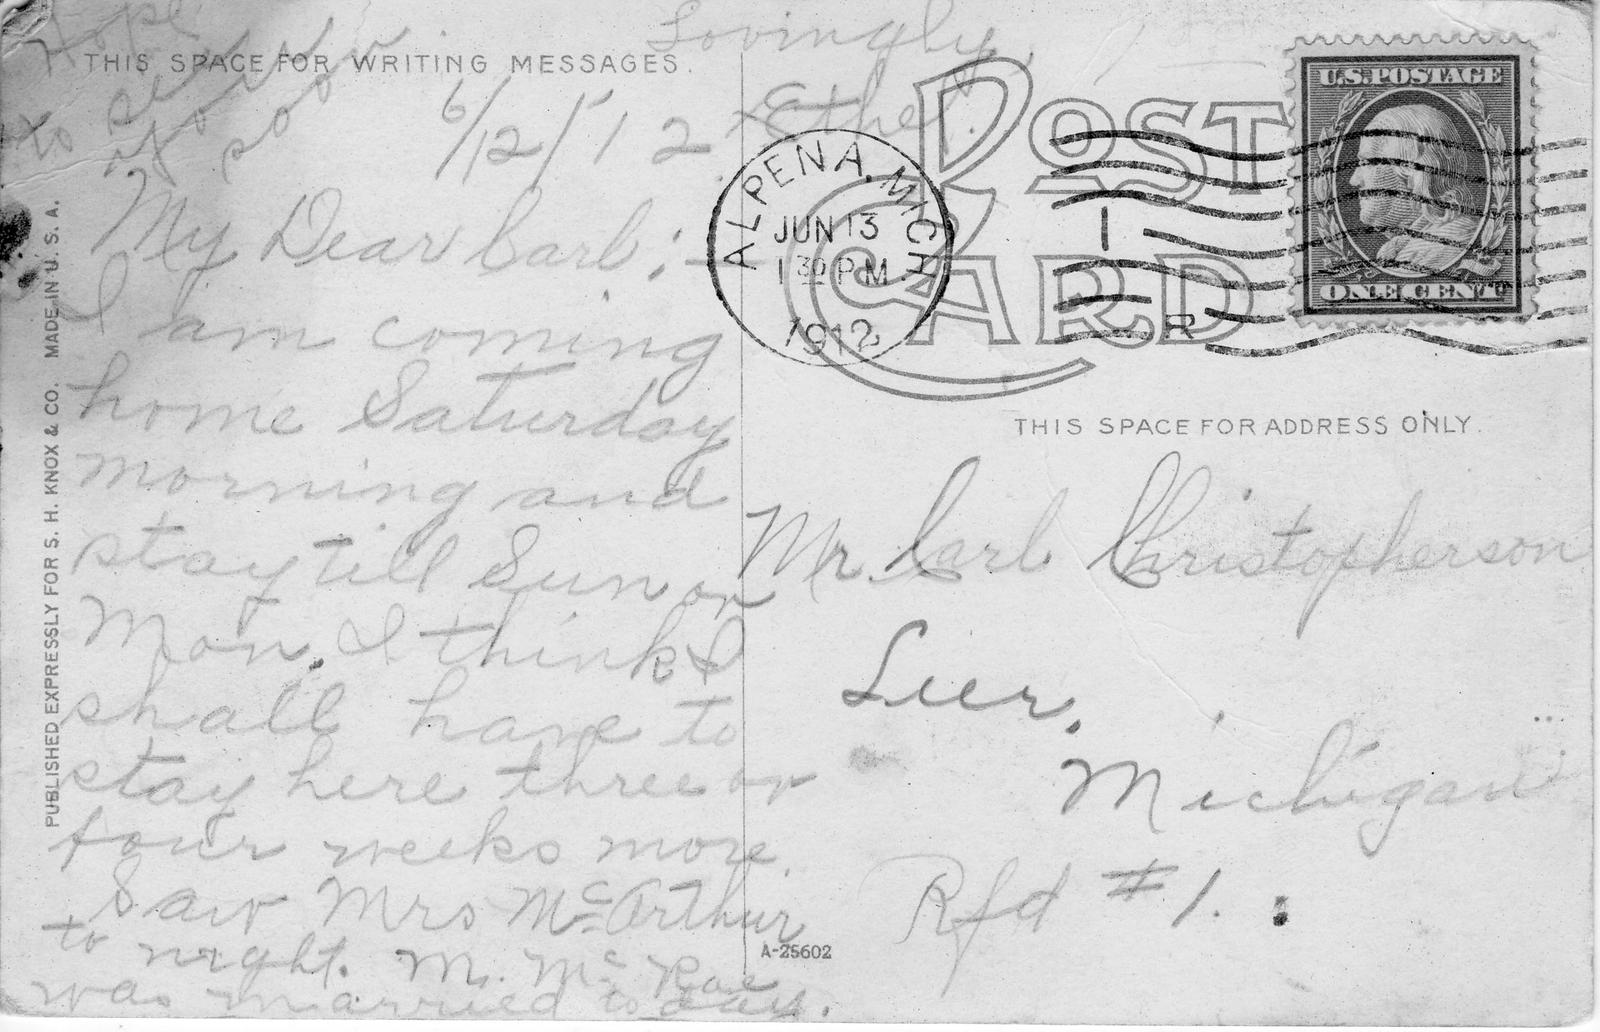 THIS SPACE FOR WRITING MESSAGES.
6/12/'12
My Dear Carl:—
I am coming
home Saturday
morning and
stay till Sun or
Mon. I think I
shall have to
stay here three or
four weeks more.
Saw Mrs McArthur
to night. M. McRae
was married to day.
Hope
to see you
if so
Lovingly,
Ethel.
PUBLISHED EXPRESSLY FOR S. H. KNOX & CO. MADE IN U. S. A.
POST
CARD
ALPENA, MICH.
JUN 13
1 30 P M
1912
1
R
U.S. POSTAGE
ONE CENT
THIS SPACE FOR ADDRESS ONLY.
Mr. Carl Christopherson
Lier.
Michigan
Rfd #1.
A-25602